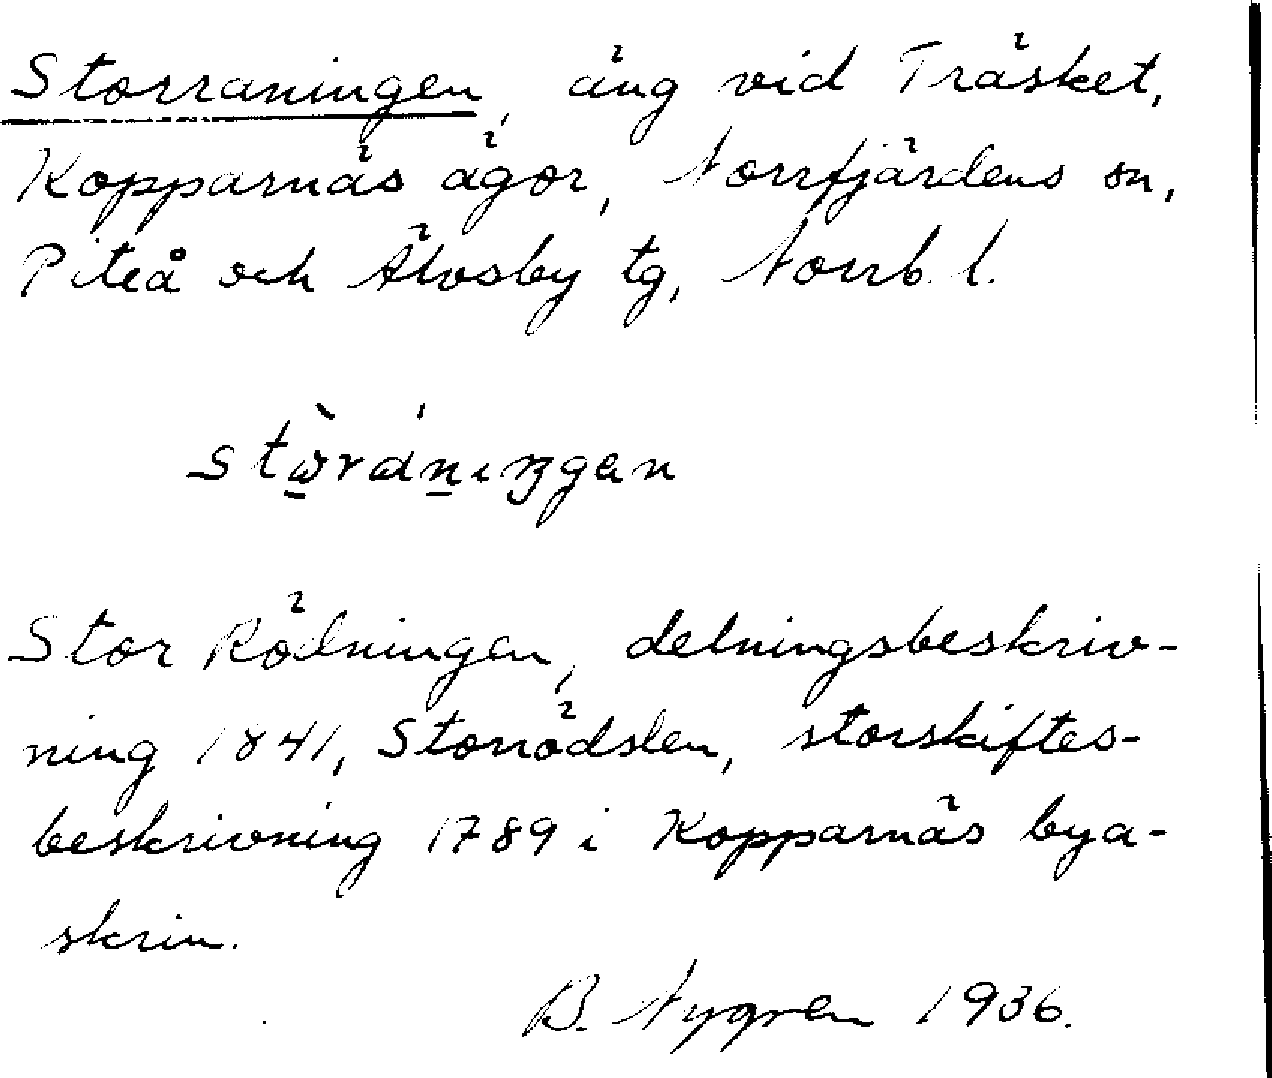 Storraningen, äng vid Träsket,
Kopparnäs ägor, Norrfjärdens sn,
Piteå och Älvsby tg, Norrb. l.
Stor Rödningen, delningsbeskriv-
ning 1841, Storrödslen, storskiftes-
beskrivning 1789 i Kopparnäs bya-
skrin.
B. Nygren 1936.